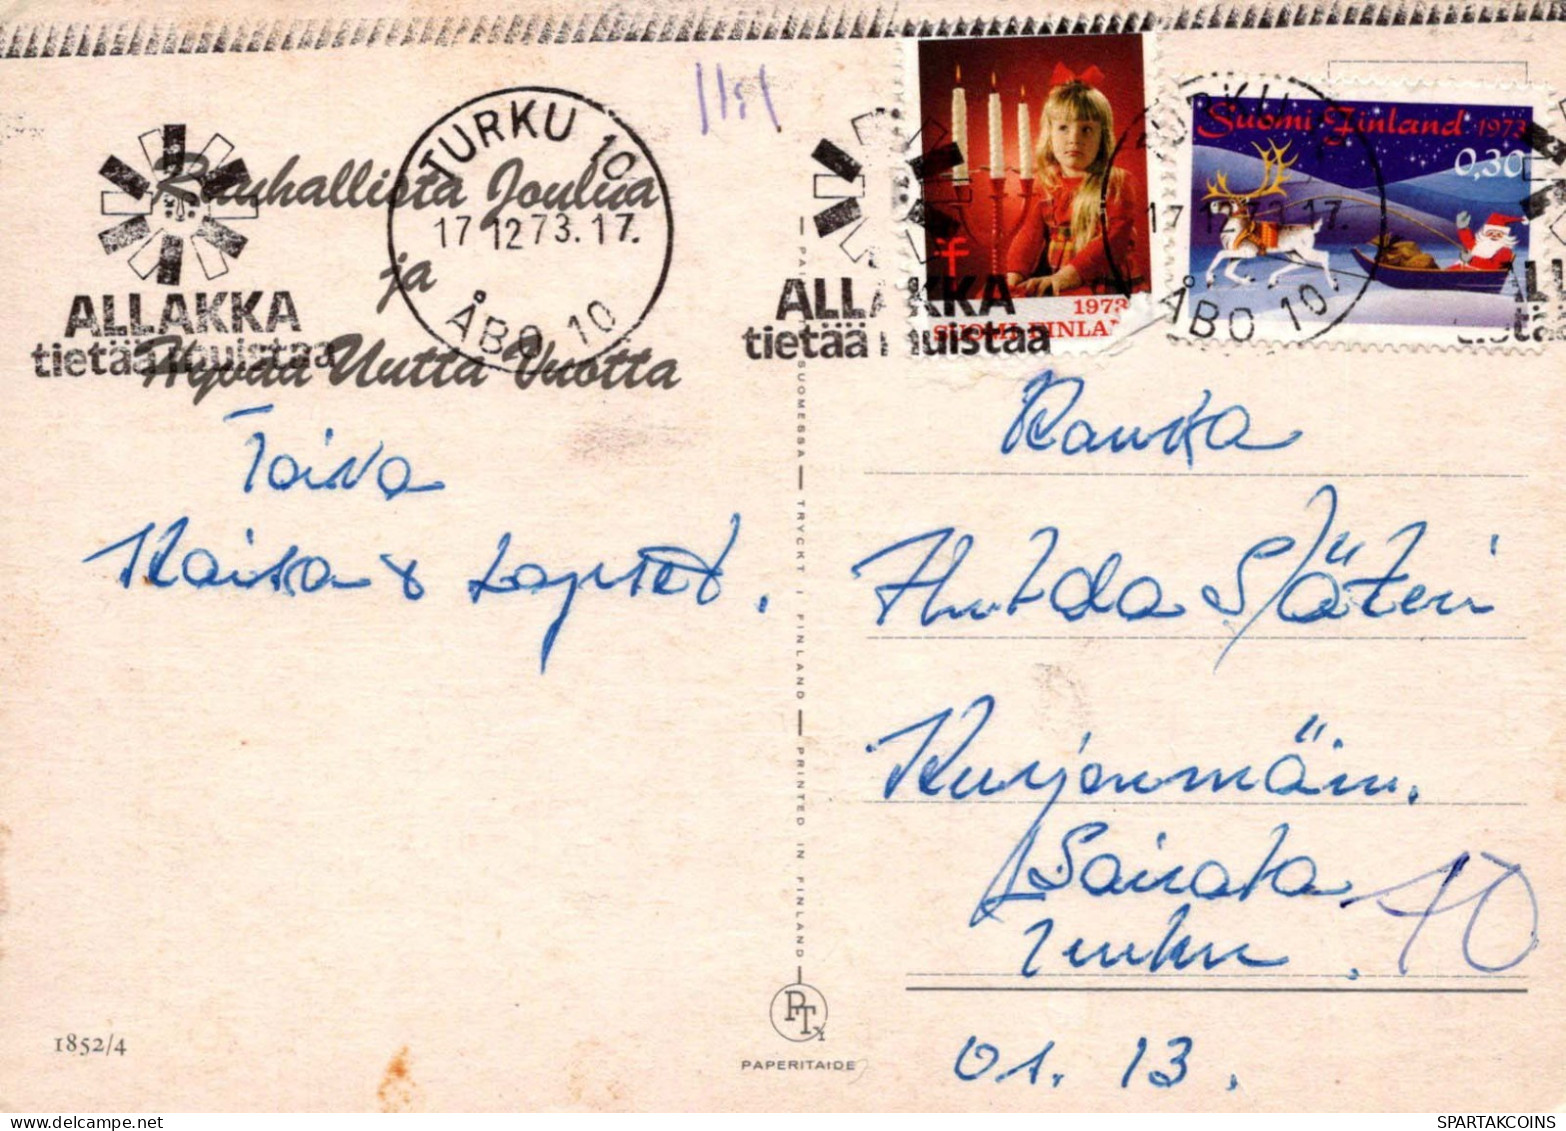 TURKU 10
17.12.73.17.
ÅBO 10
ALLAKKA
tietää muistaa
Rauhallista Joulua
ja
Hyvää Uutta Vuotta
Toivo
Kaisa & Lapset.
1852/4
PAINETTU SUOMESSA — TRYCKT I FINLAND — PRINTED IN FINLAND
PTy
PAPERITAIDE
1973
SUOMI FINLAND
Suomi Finland 1973
0,30
TURKU
17.12.73.17.
ÅBO 10
ALLAKKA
tietää muistaa
Rouva
Hulda Sjäteri
Kurjenmäin.
Sairala
Turku. 10
01. 13.
SPARTAKCOINS